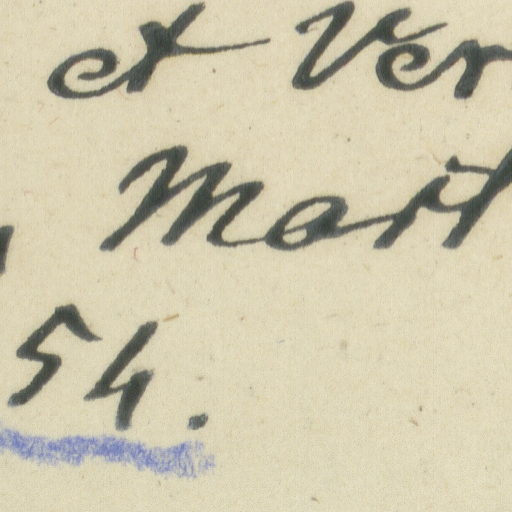 et Ver
Mart
54.